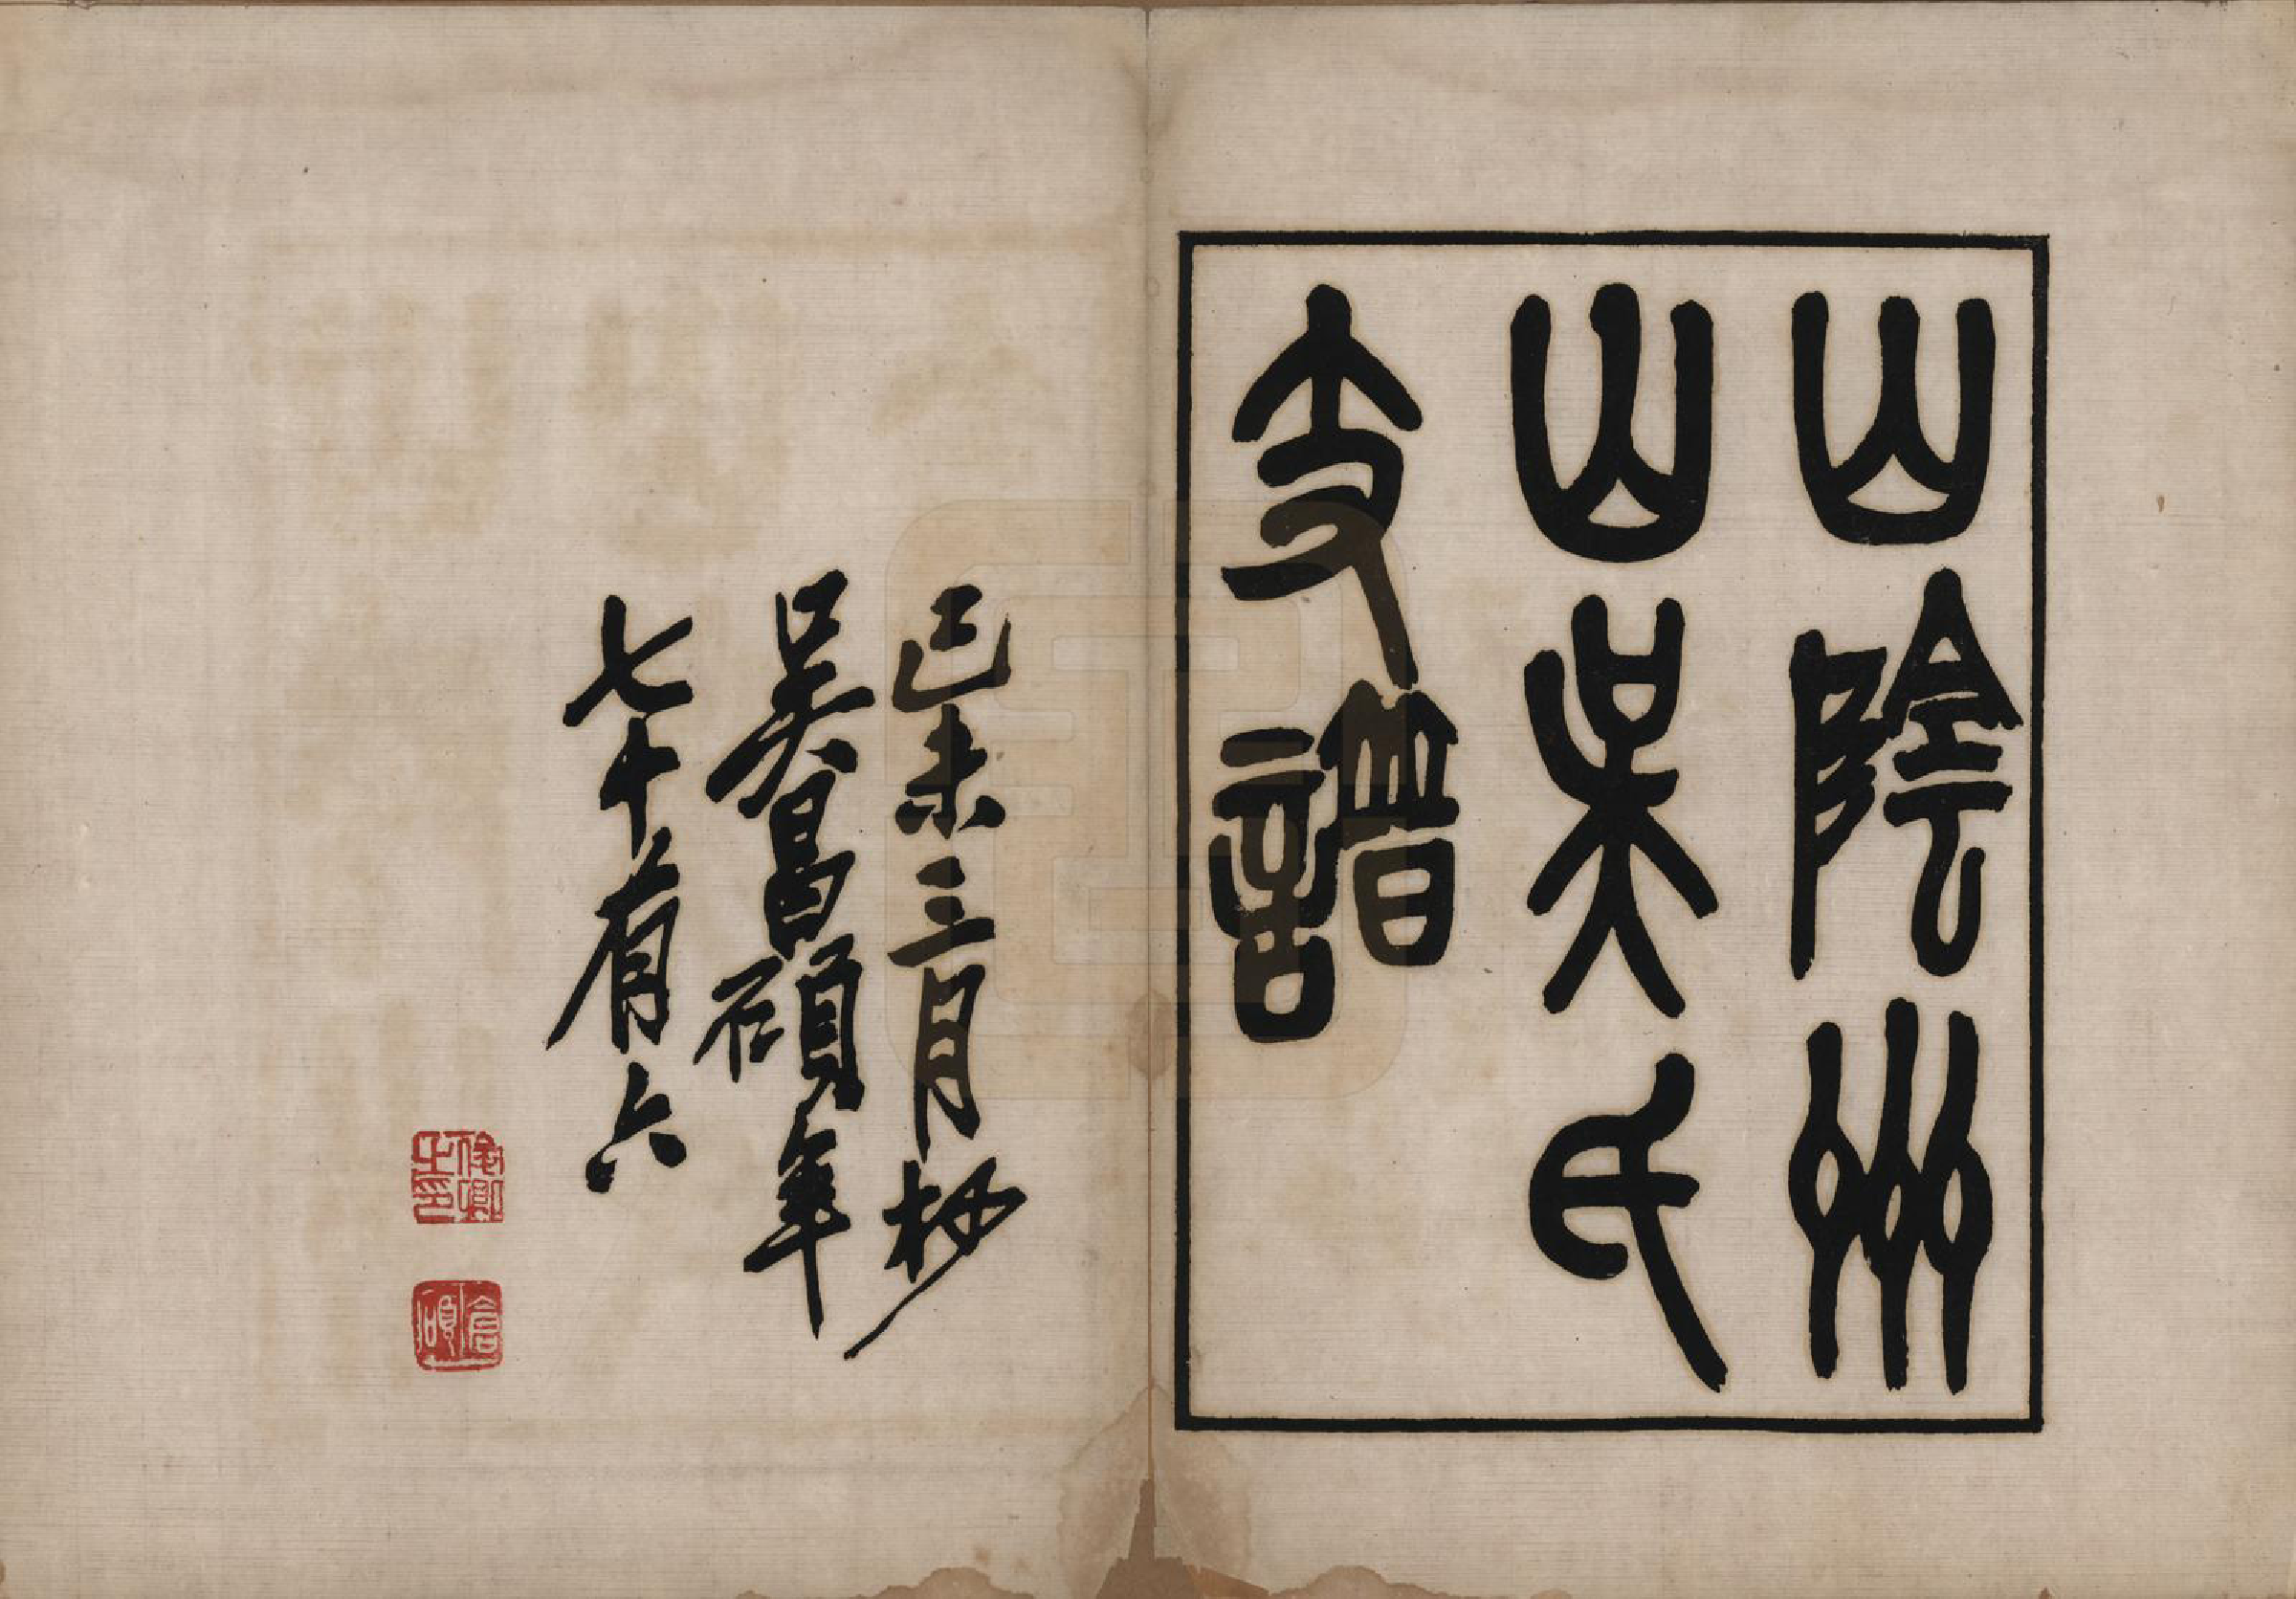 山陰州
山吳氏
支譜
己未三月杪
吳昌碩年
七十有六
俊卿之印
倉碩